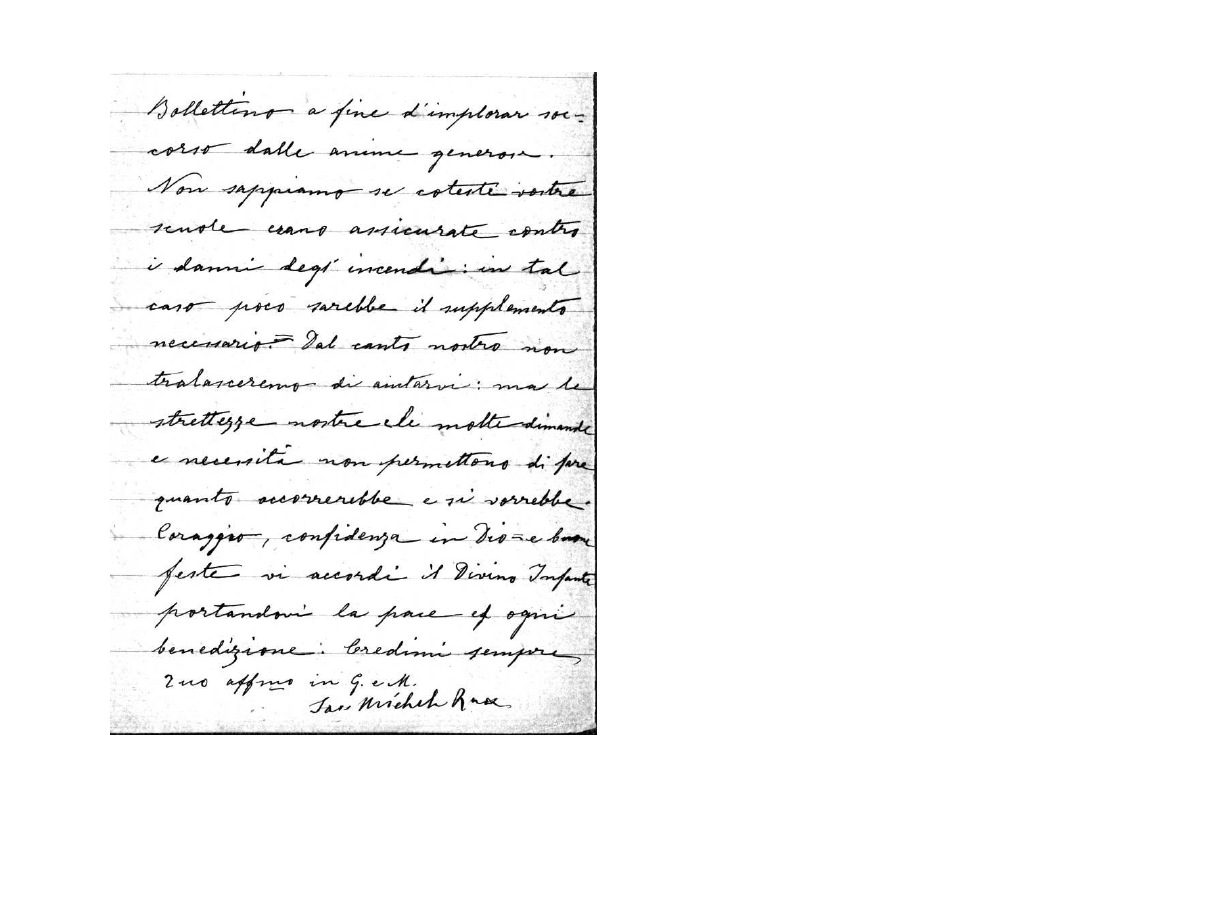 Bollettino a fine d'implorar soc=
corso dalle anime generose.
Non sappiamo se coteste vostre
scuole erano assicurate contro
i danni degl' incendi: in tal
caso poco sarebbe il supplemento
necessario. = Dal canto nostro non
tralasceremo di aiutarvi: ma le
strettezze nostre e le molte dimande
e necessità non permettono di fare
quanto occorrerebbe e si vorrebbe.
Coraggio, confidenza in Dio = e buone
feste vi accordi il Divino Infante
portandovi la pace ed ogni
benedizione. Credimi sempre
Tuo affmo in G. e M.
Sac. Michele Rua